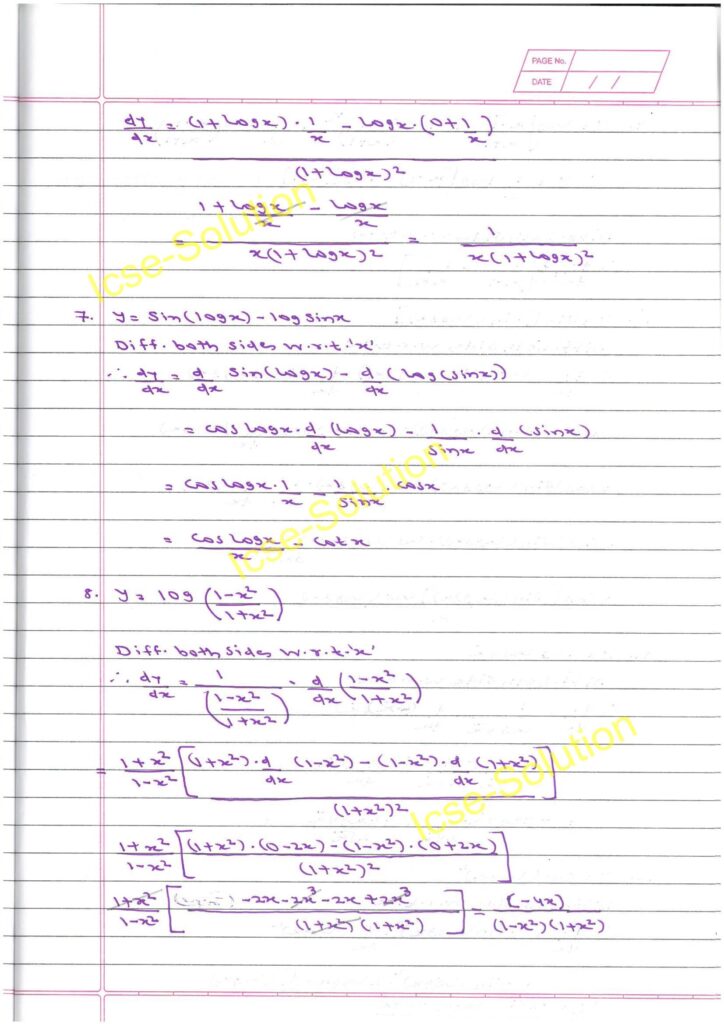 PAGE No.
DATE / /
dy/dx = (1+logx)·1/x - logx·(0+1/x)
(1+logx)²
1+logx/x - logx/x
= x(1+logx)² = 1/x(1+logx)²
Icse-Solution
7. y = sin(logx) - log sinx
Diff. both sides w.r.t.'x'
∴ dy/dx = d/dx sin(logx) - d/dx (log(sinx))
= cos logx · d/dx (logx) - 1/sinx · d/dx (sinx)
= cos logx · 1/x - 1/sinx · cosx
Icse-Solution
= cos logx/x - cotx
8. y = log (1-x²/1+x²)
Diff. both sides w.r.t.'x'
∴ dy/dx = 1/(1-x²/1+x²) · d/dx (1-x²/1+x²)
= 1+x²/1-x² [(1+x²)·d/dx (1-x²) - (1-x²)·d/dx (1+x²)/(1+x²)²]
Icse-Solution
1+x²/1-x² [(1+x²)·(0-2x) - (1-x²)·(0+2x)/(1+x²)²]
1+x²/1-x² [-2x-2x³-2x+2x³/(1+x²)(1+x²)] = (-4x)/(1-x²)(1+x²)